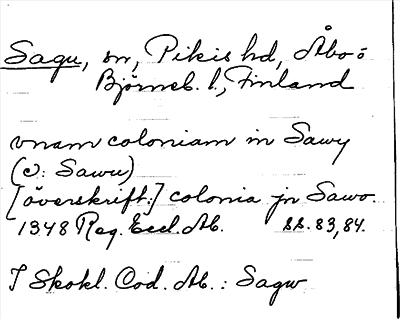 Sagu, sn, Pikis hd, Åbo o
Björneb. l., Finland
vnam coloniam in Sawy
(ɔ: Sawu)
[överskrift:] colonia jn Sawo.
1348 Reg. Eccl. Ab. ss. 83, 84.
I Skokl. Cod. Ab. : Sagw